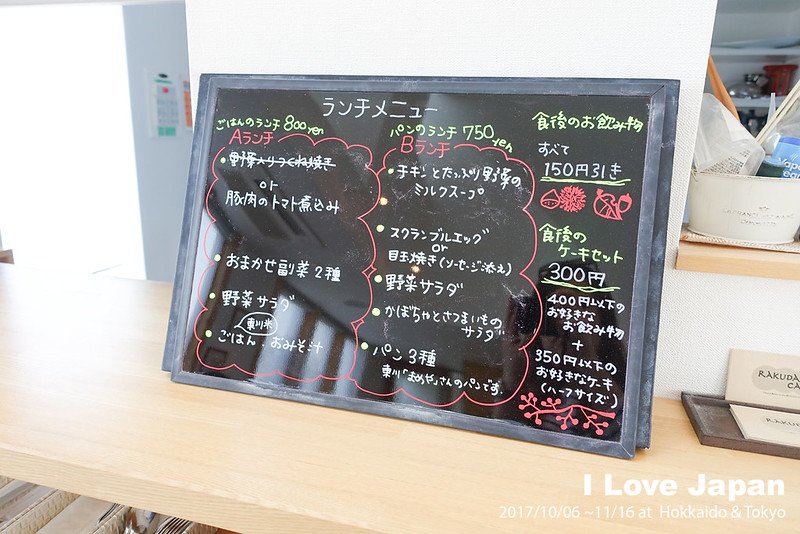 ランチメニュー
ごはんのランチ 800yen
Aランチ
野菜入りつくね焼き
or
豚肉のトマト煮込み
おまかせ副菜2種
野菜サラダ
東川米
ごはん・おみそ汁
パンのランチ 750yen
Bランチ
チキンとたっぷり野菜の
ミルクスープ
スクランブルエッグ
or
目玉焼き(ソーセージ添え)
野菜サラダ
かぼちゃとさつまいもの
サラダ
パン3種
さんのパンです。
食後のお飲み物
すべて
150円引き
食後の
ケーキセット
300円
400円以下の
お好きな
お飲み物
+
350円以下の
お好きなケーキ
(ハーフサイズ)
RAKUDA
CA
RAKUD
I Love Japan
2017/10/06 ~11/16 at Hokkaido & Tokyo